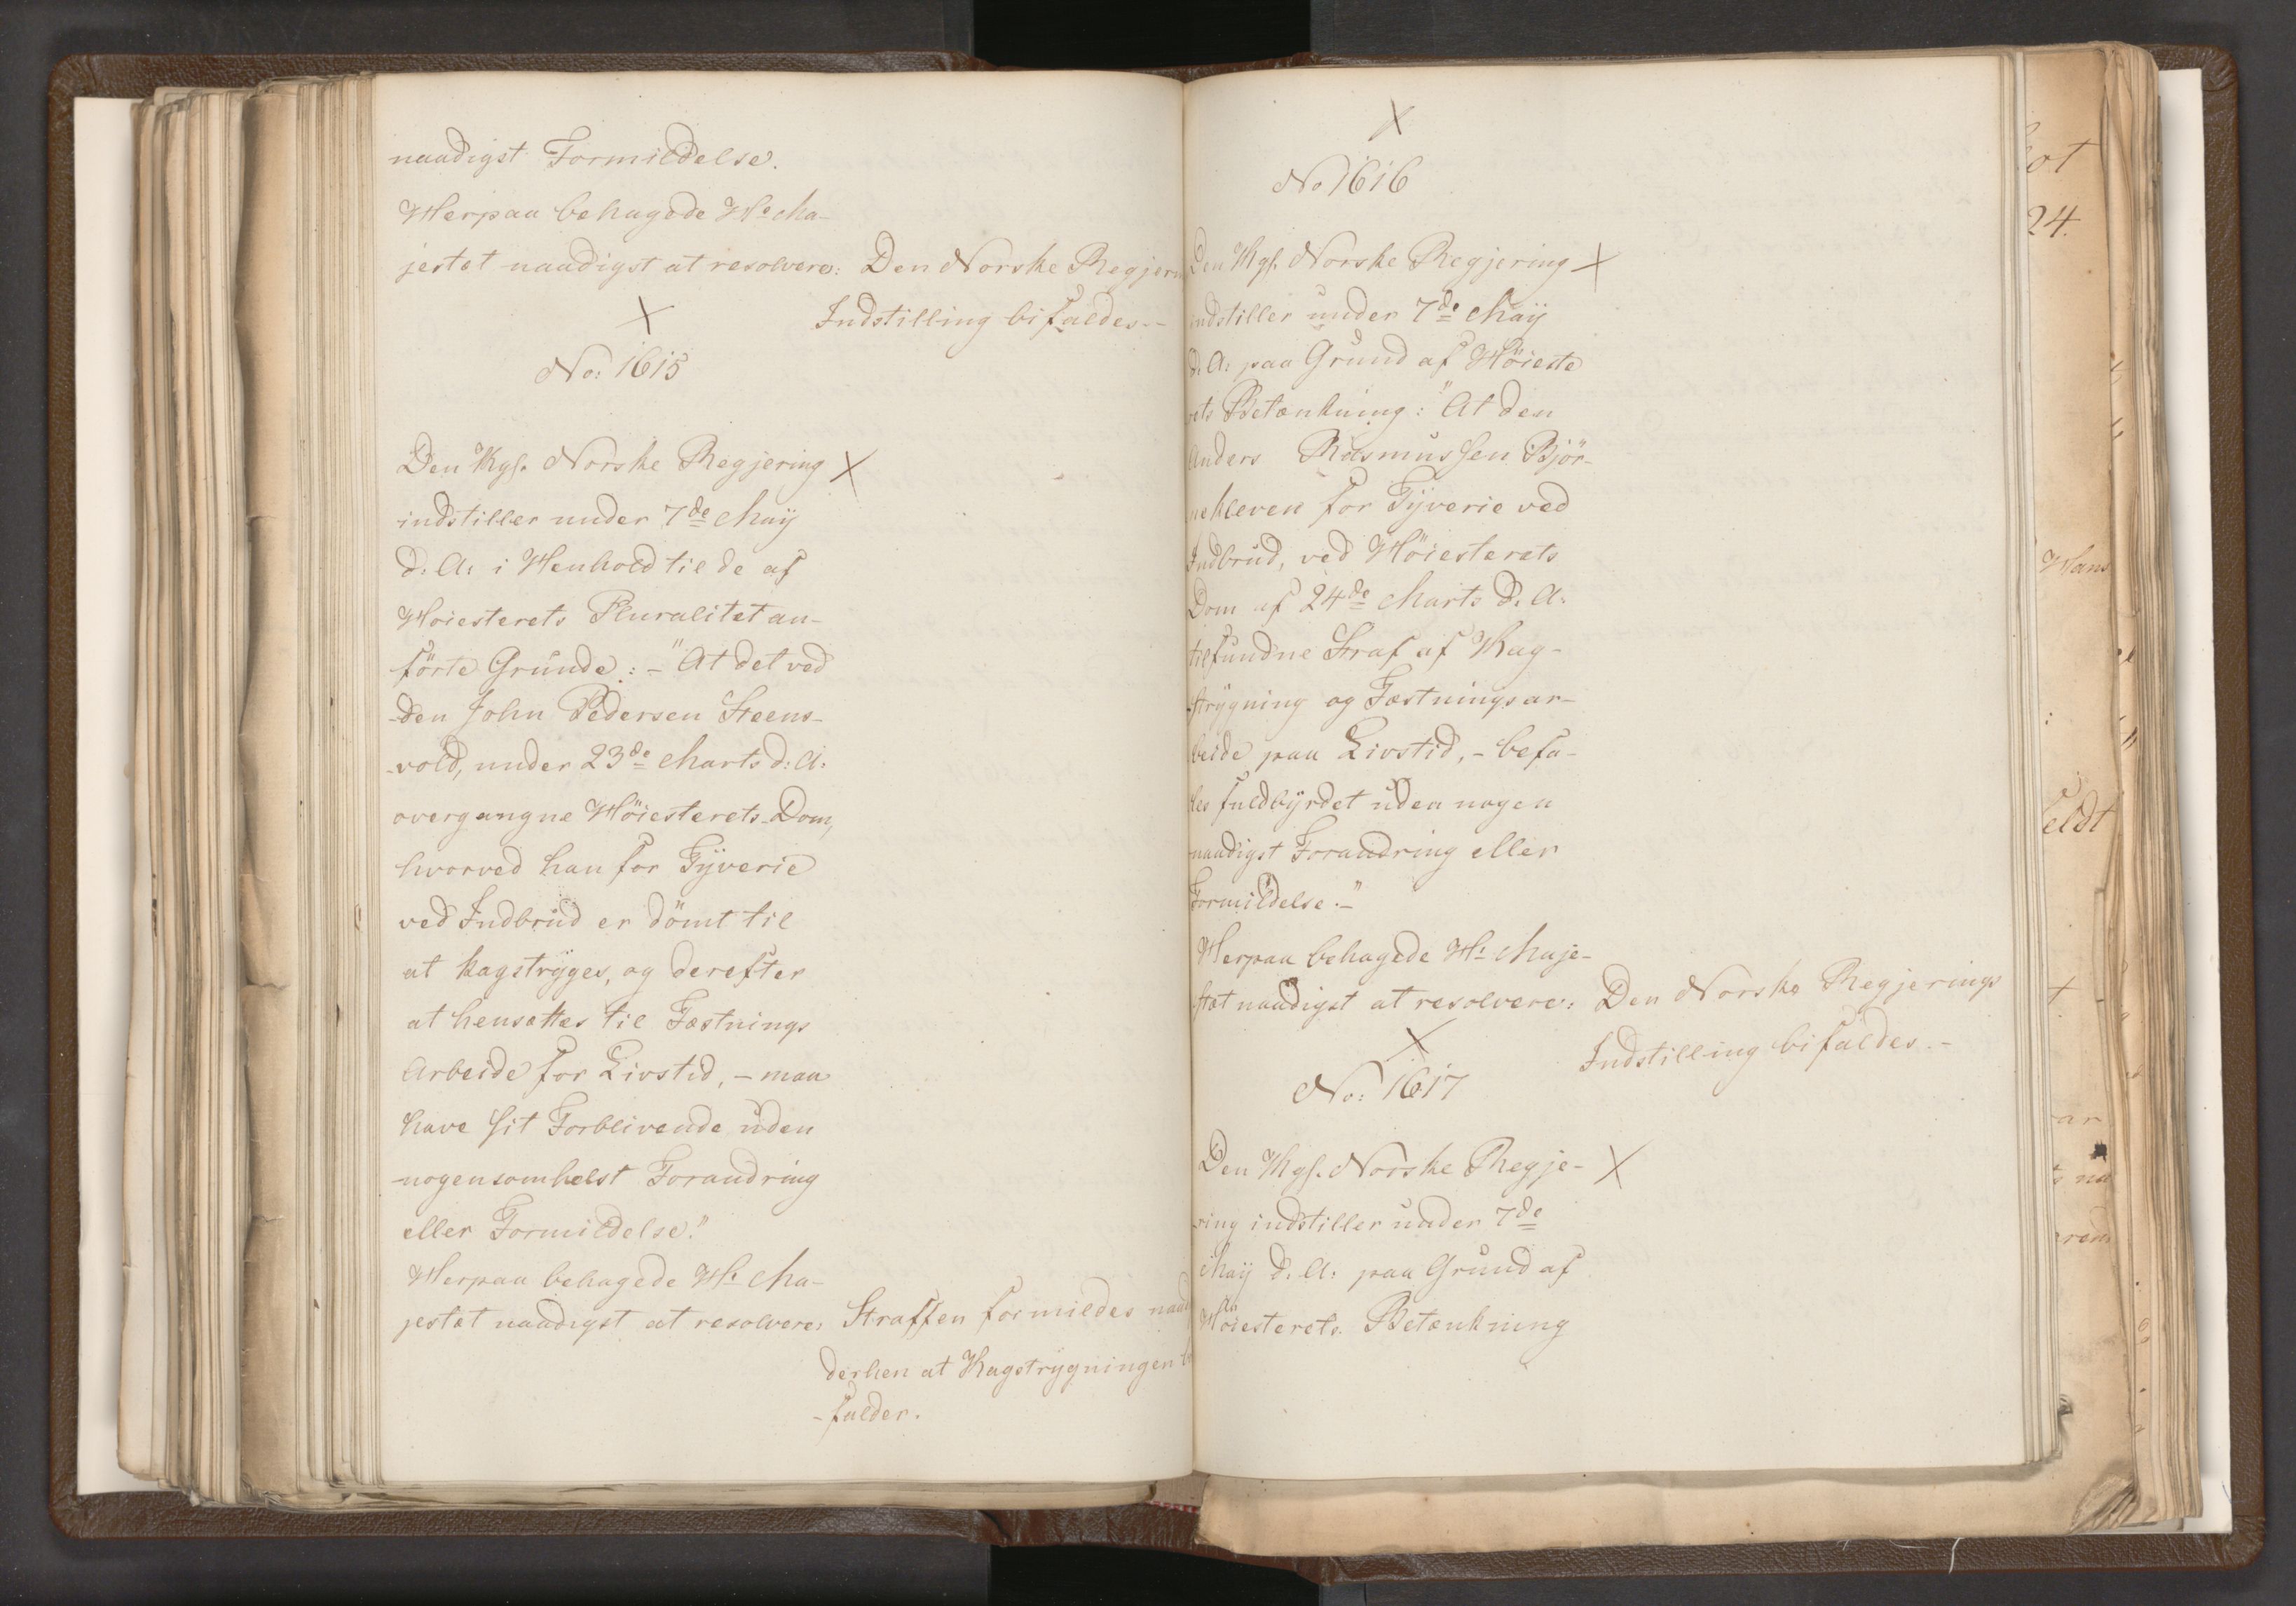 naadigst Formildelse.
Herpaa behagede Hs Ma-
jestæt naadigst at resolvere: Den Norske Regjer
Indstilling bifaldes.-
X
No: 1615
Den Kgl. Norske Regjering X
indstiller under 7de May
d: A: i Henhold til de af
Høiesterets Pluralitet an-
förte Grunde: - "At det ved
den John Pedersen Steens-
vold, under 23de Marts d: A:
overgangne Höiesterets-Dom,
hvorved han for Tÿverie
ved Indbrud er dömt til
at kagstrÿges, og derefter
at hensættes til Fæstnings
Arbeide for Livstid, - maa
have sit Forblivende uden
nogensomhelst Forandring
eller Formildelse."
Herpaa behagede Hs Ma-
jestæt naadigst at resolvere: Straffen formildes naad
derhen at Kagstrygningen
-falder.
X
No 1616
Den Kgl. Norske Regjering X
indstiller under 7de Maÿ
d. A: paa Grund af Höieste
rets Betænkning: "At den
Anders Rasmussen Björ-
nekleven for Tÿverie ved
Indbrud, ved Höiesterets
Dom af 24de Marts d. A:
tilfundne Straf af Kag-
strÿgning og Fæstningsar-
beide paa Livstid, - befa-
les fuldbÿrdet uden nogen
naadigst Forandring eller
Formildelse.-"
Herpaa behagede Hs Maje-
stæt naadigst at resolvere: Den Norske Regjerings
Indstilling bifaldes.-
X
No: 1617
Den Kgl. Norske Regje- X
ring indstiller under 7de
Maÿ d. A: paa Grund af
Höiesterets Betænkning
24.
Hans